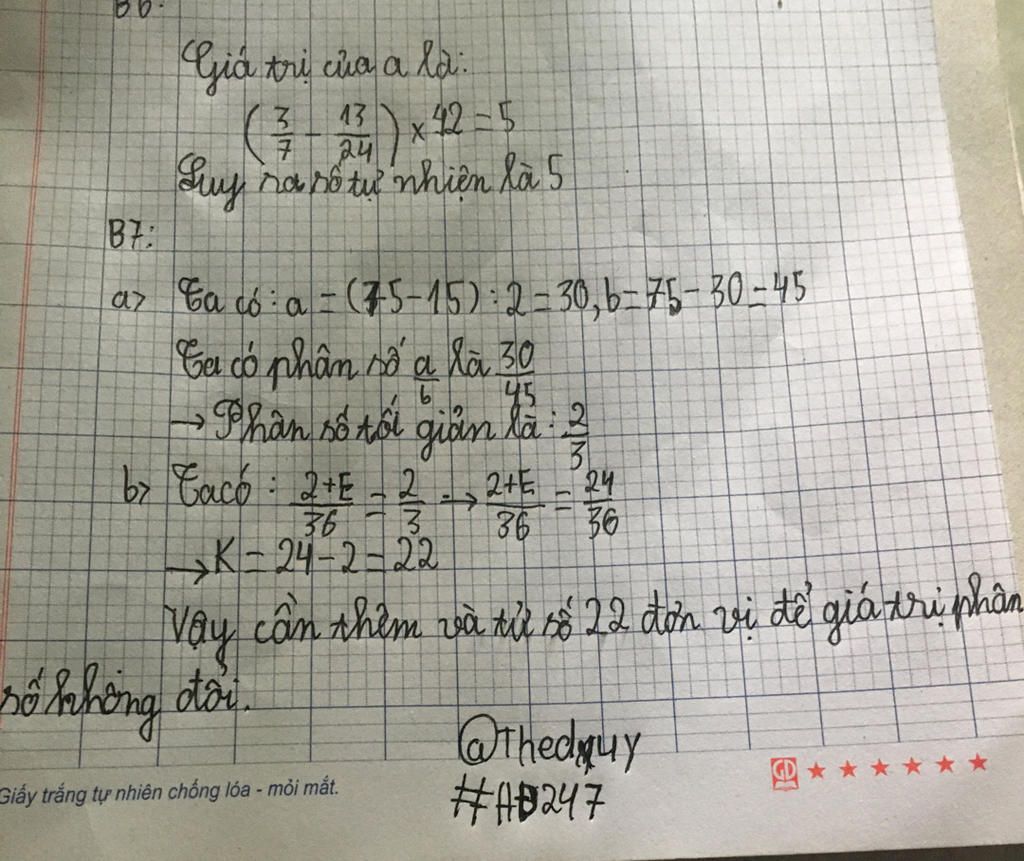 B6:
Giá trị của a là:
(3/7 - 13/24) × 42 = 5
Suy ra số tự nhiên là 5
B7:
a> Ta có : a = (75 - 15) : 2 = 30, b = 75 - 30 = 45
Ta có phân số a/b là 30/45
→ Phân số tối giản là : 2/3
b> Ta có : 2+E/36 = 2/3 → 2+E/36 = 24/36
→ K = 24 - 2 = 22
Vậy cần thêm và tử số 22 đơn vị để giá trị phân
số không đổi.
@Thedquy
#AD247
GD ★★★★★★
Giấy trắng tự nhiên chống lóa - mỏi mắt.